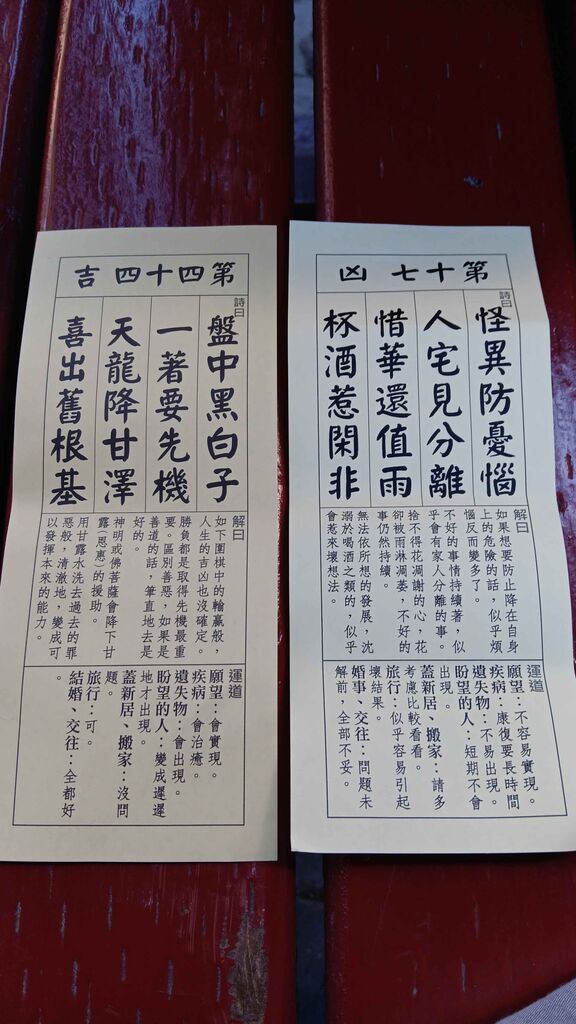 第十七 凶
詩曰
怪異防憂惱
人宅見分離
惜華還值雨
杯酒惹閑非
解曰
如果想要防止降在自身
上的危險的話，似乎煩
惱反而變多了。
不好的事情持續著，似
乎會有家人分離的事。
捨不得花凋謝的心，花
卻被雨淋凋萎，不好的
事仍然持續。
無法依所想的發展，沈
溺於喝酒之類的，似乎
會惹來壞想法。
運道
願望：不容易實現。
疾病：康復要長時間
遺失物：不易出現。
盼望的人：短期不會
出現。
蓋新居、搬家：請多
考慮比較看看。
旅行：似乎容易引起
壞結果。
婚事、交往：問題未
解前，全部不妥。
第四十四 吉
詩曰
盤中黑白子
一著要先機
天龍降甘澤
喜出舊根基
解曰
如下圍棋中的輸贏般，
人生的吉凶也沒確定。
勝負都是取得先機最重
要。區別善惡，如果是
善道的話，筆直地去是
好的。
神明或佛菩薩會降下甘
露（恩惠）的援助。
用甘露水洗去過去的罪
惡般，清澈地，變成可
以發揮本來的能力。
運道
願望：會實現。
疾病：會治癒。
遺失物：會出現。
盼望的人：變成遲遲
地才出現。
蓋新居、搬家：沒問
題。
旅行：可。
結婚、交往：全都好
。